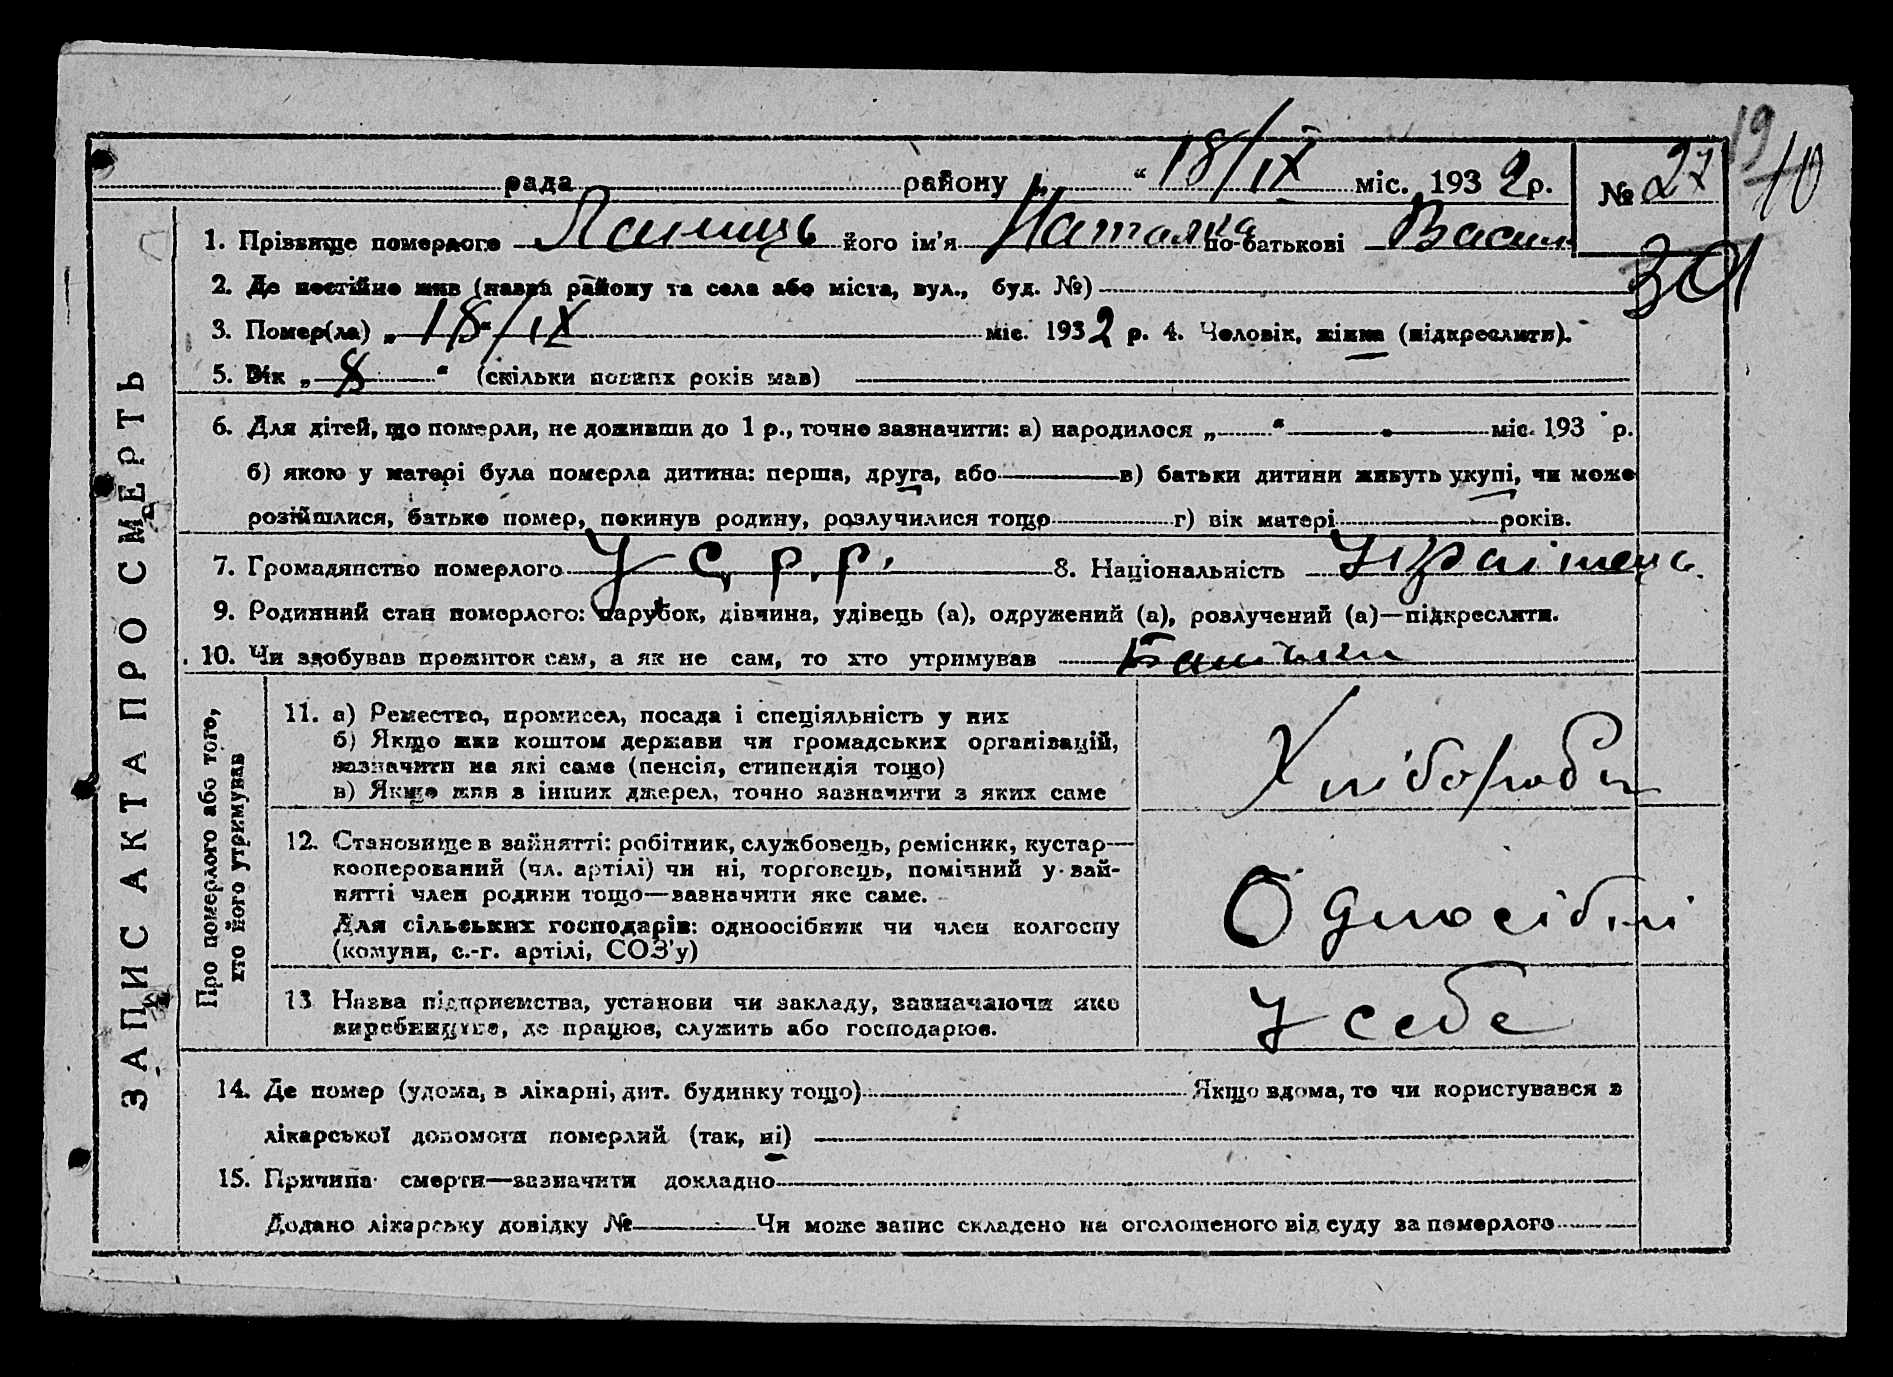 19/10
рада района "18/IX міс. 1932 р. № 27
1. Прізвище померлого його ім'я Наталка по-батькові Васил
301
2. Де постійно жив (назва району та села або міста, вул., буд. №)
3. Помер(ла) „18“/IX міс. 1932 р. 4. Чоловік, жінка (підкреслити).
5. Вік „8“ (скільки повних років мав)
6. Для дітей, що померли, не доживши до 1 р., точно зазначити: а) народилося „ “ міс. 193 р.
б) якою у матері була померла дитина: перша, друга, або в) батьки дитини живуть укупі, чи може
розійшлися, батько помер, покинув родину, розлучилися тощо г) вік матері років.
7. Громадянство померлого УСРР. 8. Національність Українець.
9. Родинний стан померлого: парубок, дівчина, удівець (а), одружений (а), розлучений (а)—підкреслити.
10. Чи здобував прожиток сам, а як не сам, то хто утримував Батьки
ЗАПИС АКТА ПРО СМЕРТЬ
Про померлого або того,
хто його утримував
11. а) Ремество, промисел, посада і спеціяльність у них
б) Якщо жив коштом держави чи громадських організацій,
зазначити на які саме (пенсія, стипендія тощо)
в) Якщо жив з інших джерел, точно зазначити з яких саме
Хлібороби
12. Становище в зайнятті: робітник, службовець, ремісник, кустар—
кооперований (чл. артілі) чи ні, торговець, помічний у зай-
нятті член родини тощо—зазначити яке саме.
Для сільських господарів: одноосібник чи член колгоспу
(комуни, с.-г. артілі, СОЗ'у)
Одноосібні
13 Назва підприємства, установи чи закладу, зазначаючи яке
виробництво, де працює, служить або господарює.
У себе
14. Де помер (удома, в лікарні, дит. будинку тощо) Якщо вдома, то чи користувався з
лікарської допомоги померлий (так, ні)
15. Причина смерти—зазначити докладно
Додано лікарську довідку № Чи може запис складено на оголошеного від суду за померлого